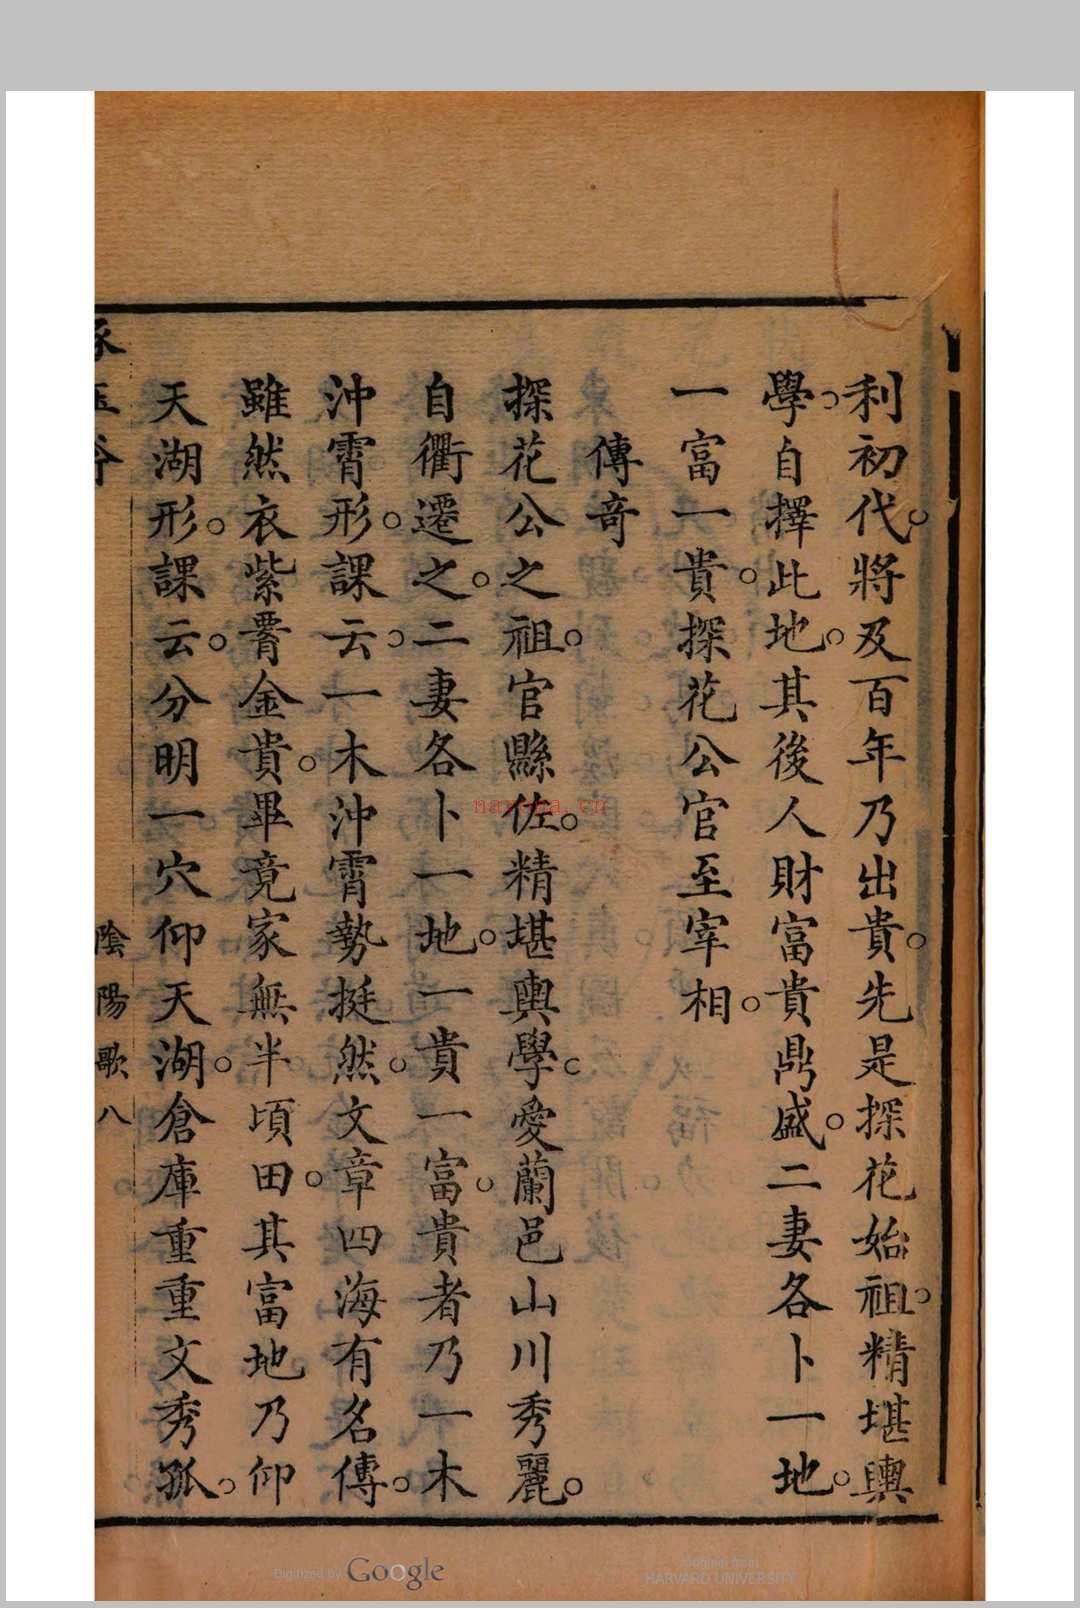 利初代將及百年乃出貴先是探花始祖精堪輿
學自擇此地其後人財富貴鼎盛二妻各卜一地
一富一貴探花公官至宰相
傳奇
探花公之祖官縣佐精堪輿學愛蘭邑山川秀麗
自衢遷之二妻各卜一地一貴一富貴者乃一木
沖霄形課云一木沖霄勢挺然文章四海有名傳
雖然衣紫胥金貴畢竟家無半頃田其富地乃仰
天湖形課云分明一穴仰天湖倉庫重重文秀孤
陰陽歌八
nayona.cn
Digitized by Google
Original from
HARVARD UNIVERSITY